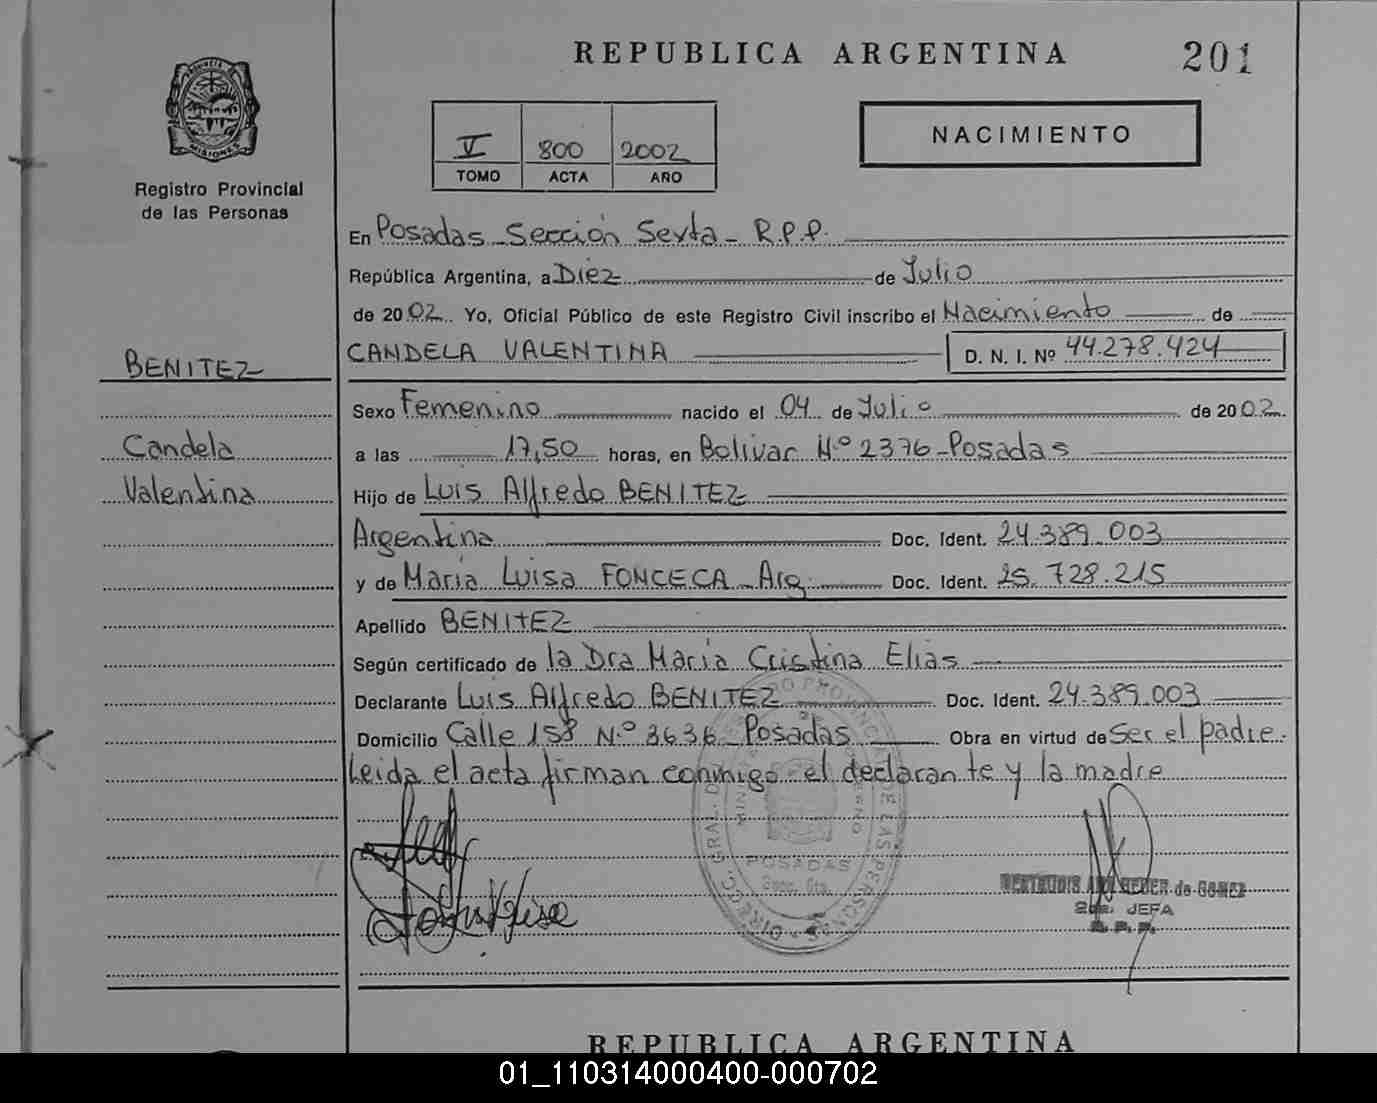 REPUBLICA ARGENTINA
201
PROVINCIA DE
MISIONES
Registro Provincial
de las Personas
V 800 2002
TOMO ACTA AÑO
NACIMIENTO
En Posadas Sección Sexta - R.P.P.
República Argentina, a Diez de Julio
de 2002. Yo, Oficial Público de este Registro Civil inscribo el Nacimiento de
CANDELA VALENTINA D. N. I. Nº 44.278.424
BENITEZ
Candela
Valentina
Sexo Femenino nacido el 04 de Julio de 2002.
a las 17,50 horas, en Bolivar Nº 2376 - Posadas
Hijo de Luis Alfredo BENITEZ
Argentina Doc. Ident. 24.389.003
y de María Luisa FONCECA - Arg. Doc. Ident. 25.728.215
Apellido BENITEZ
Según certificado de la Dra María Cristina Elias
Declarante Luis Alfredo BENITEZ Doc. Ident. 24.389.003
Domicilio Calle 158 N.º 3636 - Posadas Obra en virtud de Ser el padre.
Leida el acta firman conmigo el declarante y la madre
POSADAS
Secc. 6ta.
DE LAS PERSONAS
de GOMEZ
JEFA
R. P. P.
REPUBLICA ARGENTINA
01_110314000400-000702